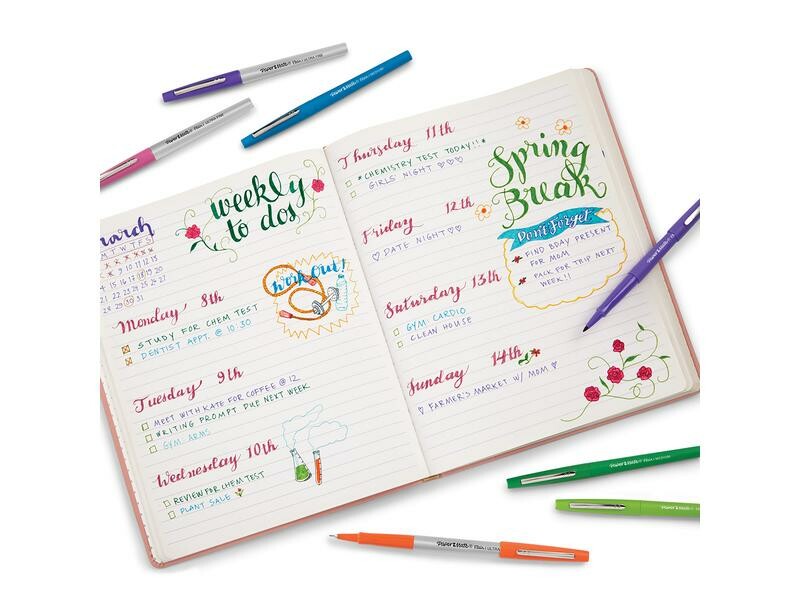 Paper Mate® Flair ULTRA FINE
Paper Mate® Flair MEDIUM
Paper Mate® Flair ULTRA FINE
weekly
to dos
March
M T W T F S
9 10 11 12 13
28 29 30 31
work out!
Monday 8th
STUDY FOR CHEM TEST
DENTIST APPT. @ 10:30
Tuesday 9th
MEET WITH KATE FOR COFFEE @ 12
WRITING PROMPT DUE NEXT WEEK
GYM: ARMS
Wednesday 10th
REVIEW FOR CHEM TEST
PLANT SALE
Thursday 11th
*CHEMISTRY TEST TODAY!!*
GIRLS' NIGHT ♡♡♡
Friday 12th
♡ DATE NIGHT ♡
Saturday 13th
GYM: CARDIO
CLEAN HOUSE
Sunday 14th
♡ FARMER'S MARKET W/ MOM ♡
Spring
Break
Don't Forget
FIND BDAY PRESENT
FOR MOM
PACK FOR TRIP NEXT
WEEK!!
Paper Mate® Flair MEDIUM
Paper Mate® Flair
Paper Mate® Flair ULTRA